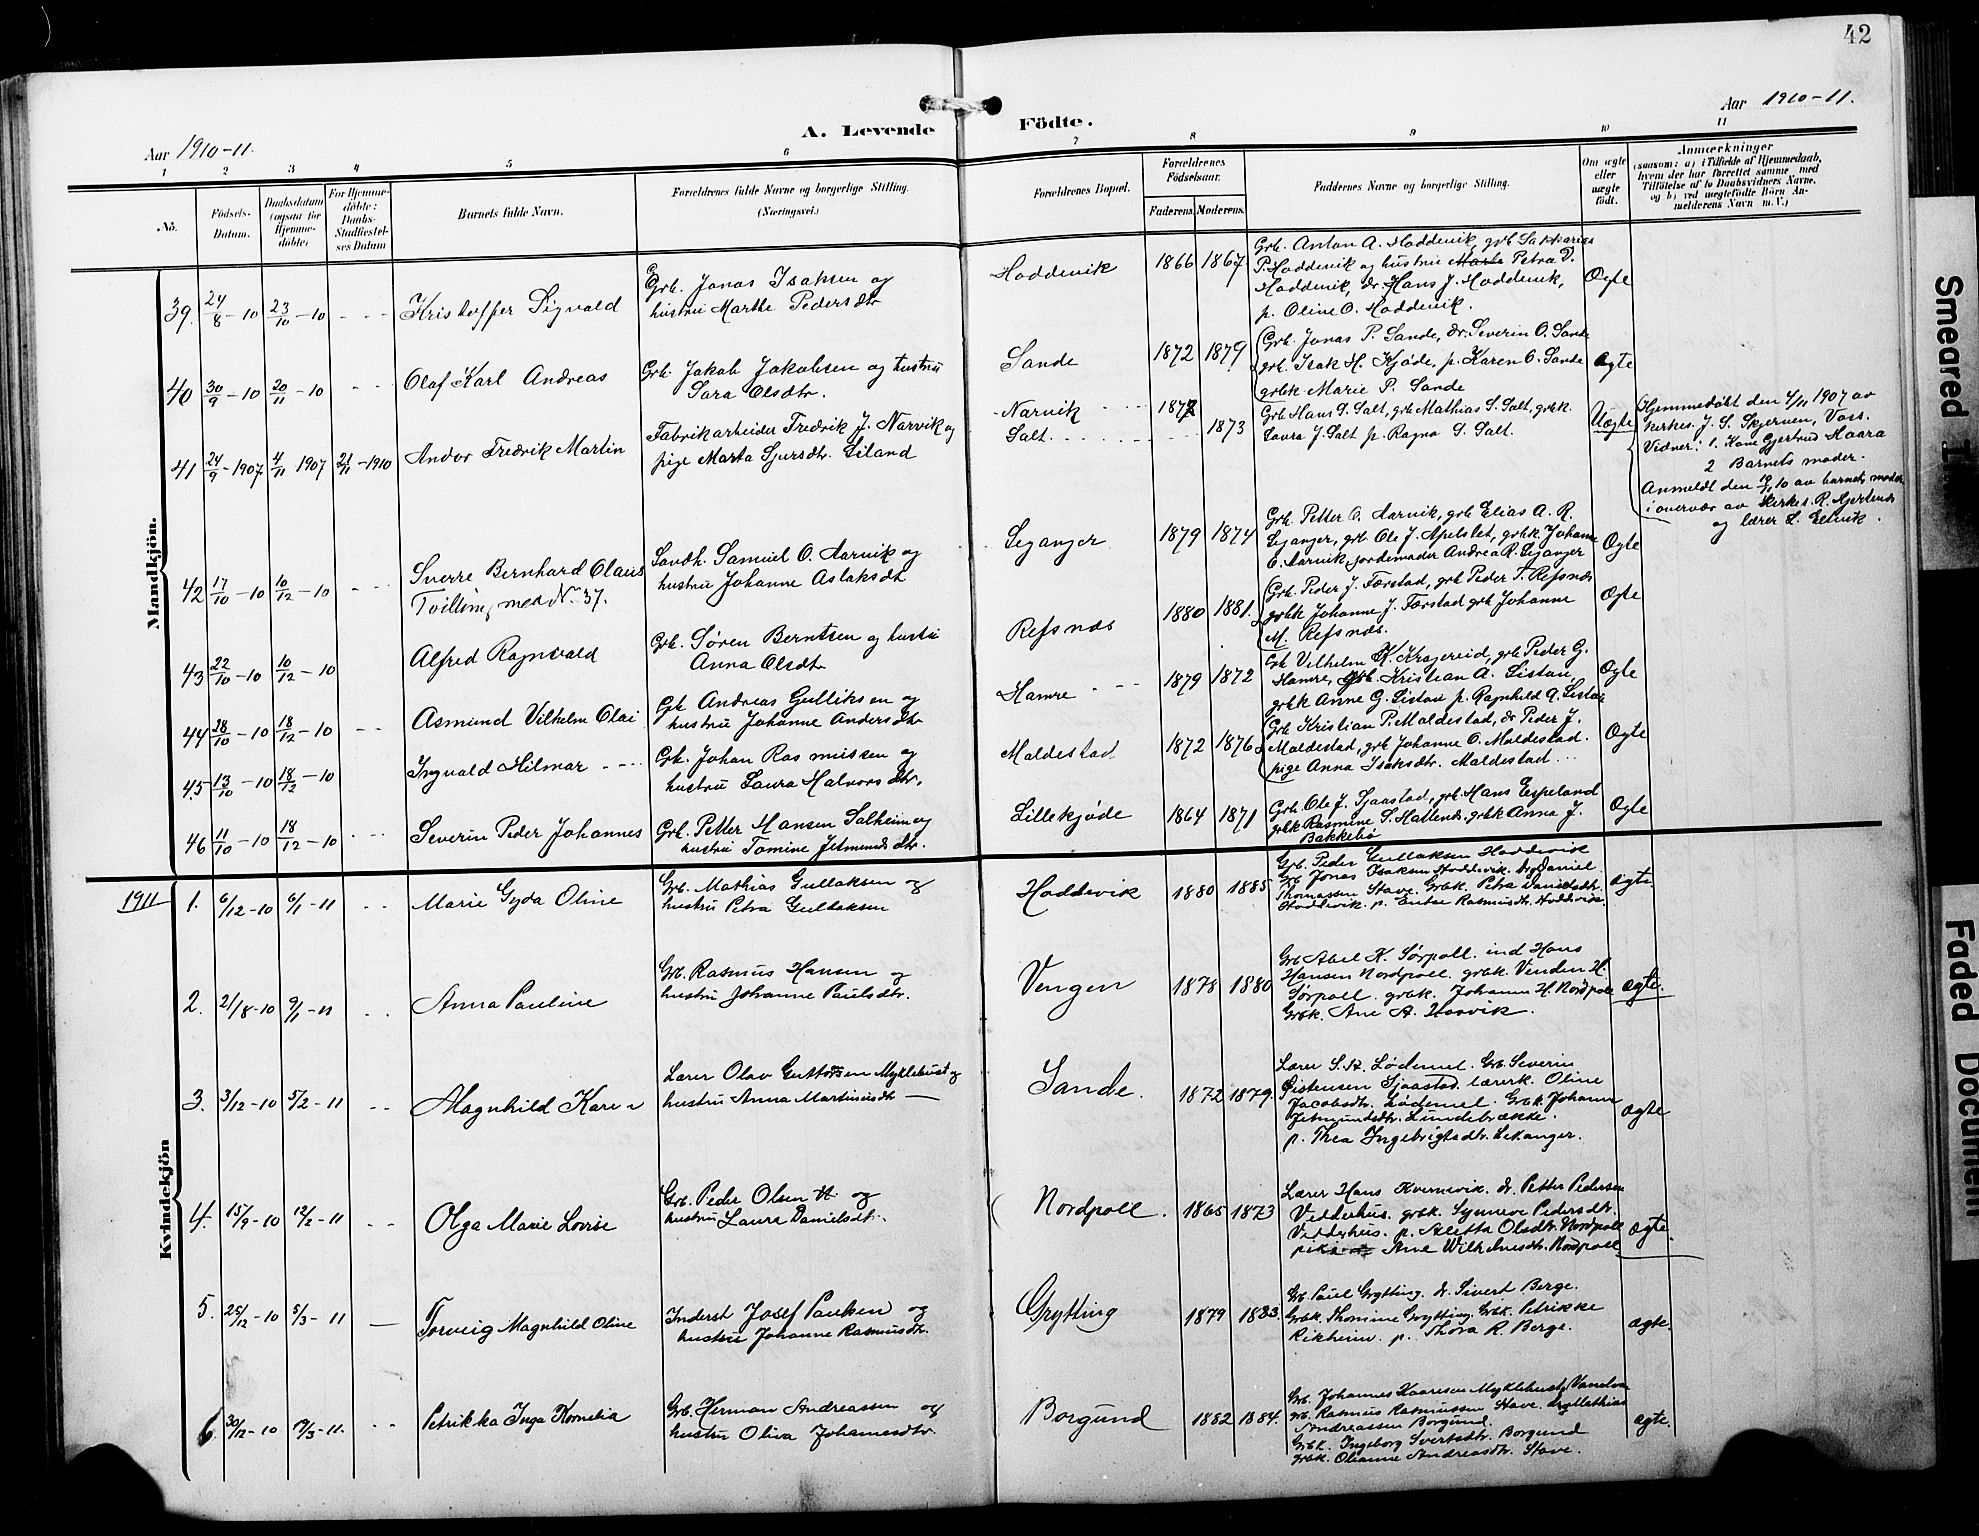 42
Aar 1910-11.
A. Levende Födte.
Aar 1910-11.
1 2 3 4 5 6 7 8 9 10 11
No.
Födsels-Datum.
Daabsdatum (ogsaa for Hjemme-döbte)
For Hjemme-döbte: Daabs-Stadfæstel-ses Datum
Barnets fulde Navn.
Forældrenes fulde Navne og borgerlige Stilling.
(Næringsvei.)
Forældrenes Bopæl.
Forældrenes Födselsaar.
Faderens. Moderens.
Faddernes Navne og borgerlige Stilling.
Om ægte eller uægte födt.
Anmærkninger
(saasom: a) i Tilfælde af Hjemmedaab, hvem der har forrettet samme med Tilföielse af to Daabsvidners Navne, og b) ved uægtefödte Börn Anmelderens Navn m. V.)
Mandkjön.
39. 24/8-10 23/10-10 - - - Kristoffer Sigvald
Grb. Jonas Isaksen og
hustru Marthe Pedersdtr
Hoddevik 1866 1867
Grb. Anton A. Hoddevik, grb Sakkarias
P. Hoddevik og hustru Marte Petra D.
Hoddevik, dr Hans J. Hoddevik,
p. Oline O. Hoddevik.
Ægte
40 30/9-10 20/11-10 - - Olaf Karl Andreas
Grb. Jakob Jakobsen og hustru
Sara Olsdtr.
Sande 1872 1879
Grb. Jonas P. Sande, dr. Severin O. Sande
grb. Isak H. Kjøde, p. Karen O. Sande
grbk Marie P. Sande
Ægte
41 24/9-1907 4/11 1907 21/11-1910 Andor Fredrik Martin
Fabrikarbeider Fredrik J. Narvik og
pige Marta Sjursdtr. Liland
Narvik 1877
Salt 1873
Grb Hans S. Salt, grb Mathias S. Salt, grbk.
Laura J. Salt p. Ragna S. Salt.
Uægte
Hjemmedøbt den 4/11 1907 av
kirkes. J. S. Skjerven, Voss.
Vidner: 1. Kone Gjertrud Haara
2 Barnets moder.
Anmeldt den 10/11 10 av barnets moder
i overvær av kirkes. R.
og lærer L.
42 17/10-10 10/12-10 - - Sverre Bernhard Olaus
Tvilling med No. 37.
Sandh. Samuel O. Aarvik og
hustru Johanne Aslaksdt
Leganger 1879 1874
Grb. Petter O. Aarvik, grb Elias A. R.
Leganger, grb. Ole J. Apelset, grbk. Johanne
O. Aarvik, jordemoder Andrea R. Leganger
Ægte
43 22/10-10 10/12-10 Alfred Ragnvald
Grb. Søren Berntsen og hustru
Anna Olsdtr
Refsnæs 1880 1881
Grb. Peder J. Færstad, grb Peder T. Refsnæs
grbk Johanne J. Færstad grb Johanne
M. Refsnæs.
Ægte
44 28/10-10 18/12-10 - - Asmund Vilhelm Olai
Grb Andreas Gulliksen og
hustru Johanne Andersdtr
Hamre 1879 1872
Grb Vilhelm K. Kragereid, grb Peder G.
Hamre, Grb. Kristian A. Listau,
grbk Anne G. Listau p. Ragnhild A. Listau
Ægte
45 13/10-10 18/12-10 Ingvald Hilmar
Grb. Johan Rasmussen og
hustru Laura Halvorsdtr.
Maldestad 1872 1876
Grb Kristian P. Maldestad, dr Peder J.
Maldestad, grb Johanne O. Maldestad.
pige Anna Isaksdtr. Maldestad
Ægte
46 11/10-10 18/12-10 - - Severin Peder Johannes
Grb. Petter Hansen Salheim og
hustru Tomine Jetmundsdtr.
Lillekjøde 1864 1871
Grb. Ole J. Sjaastad, grb Hans Espeland
grbk Rasmine S. Hatlenes, grbk Anna J.
Bakkebø
Ægte
1911
Kvindekjön
1. 6/12-10 6/1-11 - - Marie Gyda Oline
Grb. Mathias Gullaksen og
hustru Petra Gullaksen
Hoddevik 1880 1885
Grb. Peder Gullaksen Hoddevik
Grb Jonas Isaksen Hoddevik. Daniel
Thomassen Stave. Grbk. Petra Danielsdtr.
Hoddevik. p. Rasmusdtr. Hoddevik.
ægte
2. 21/8-10 9/1-11 - - Anna Pauline
Grb. Rasmus Hansen og
hustru Johanne Paulsdtr.
Vengen 1878 1880
Grb Abel K. Sørpoll. ind Hans
Hansen Nordpoll. grbk. Venden H.
Sørpoll. grbk. Johanne H. Nordpoll
Grbk. Ane A.
ægte.
3. 3/12-10 5/2-11 - - Magnhild Karen
Lærer Olav Guttormsen Myklebust og
hustru Anna Martinusdtr
Sande. 1872 1879
Lærer S. R. Lødemel. Grb Severin
Øistensen Sjaastad. lærerk. Oline
Jacobsdtr. Lødemel. Grbk. Johanne
Jetmundsdtr. Lundebrække.
p. Thea Ingebrigtsdtr. Lekanger.
ægte
4. 15/9-10 12/2-11 - - Olga Marie Lovise
Grb. Peder Olsen og
hustru Laura Danielsdtr.
Nordpoll. 1865 1873
Lærer Hans Kvernevik. dr. Petter Pedersen
Vedderhus. grbk. Synneve Pedersdtr.
Vedderhus. p. Aletta Olsdtr. Nordpoll
Ane Wilhelmsdtr. Nordpoll
ægte.
5. 25/12-10 5/3-11 — Torveig Magnhild Oline
Inderst Josef Paulsen og
hustru Johanne Rasmusdtr.
Grytting 1879 1883.
Grb Paul Grytting. dr. Sivert Berge.
Grbk. Thomine Grytting. Grbk. Petrikke
Rikheim. p. Thora R. Berge.
ægte.
6. 30/12-10 /3-11. - - Petrikka Inga Kornelia
Grb. Herman Andreassen og
hustru Oliva Johannesdtr.
Borgund 1882 1884.
Grb. Johannes Kaaresen Myklebust, Vanelven
Grb. Rasmus Rasmussen Stave. Mathias
Andreassen Borgund.
Grbk. Ingeborg Sivertsdtr. Borgund
Grbk. Olianne Andreasdtr. Stave.
ægte.
Smeared
Faded Document